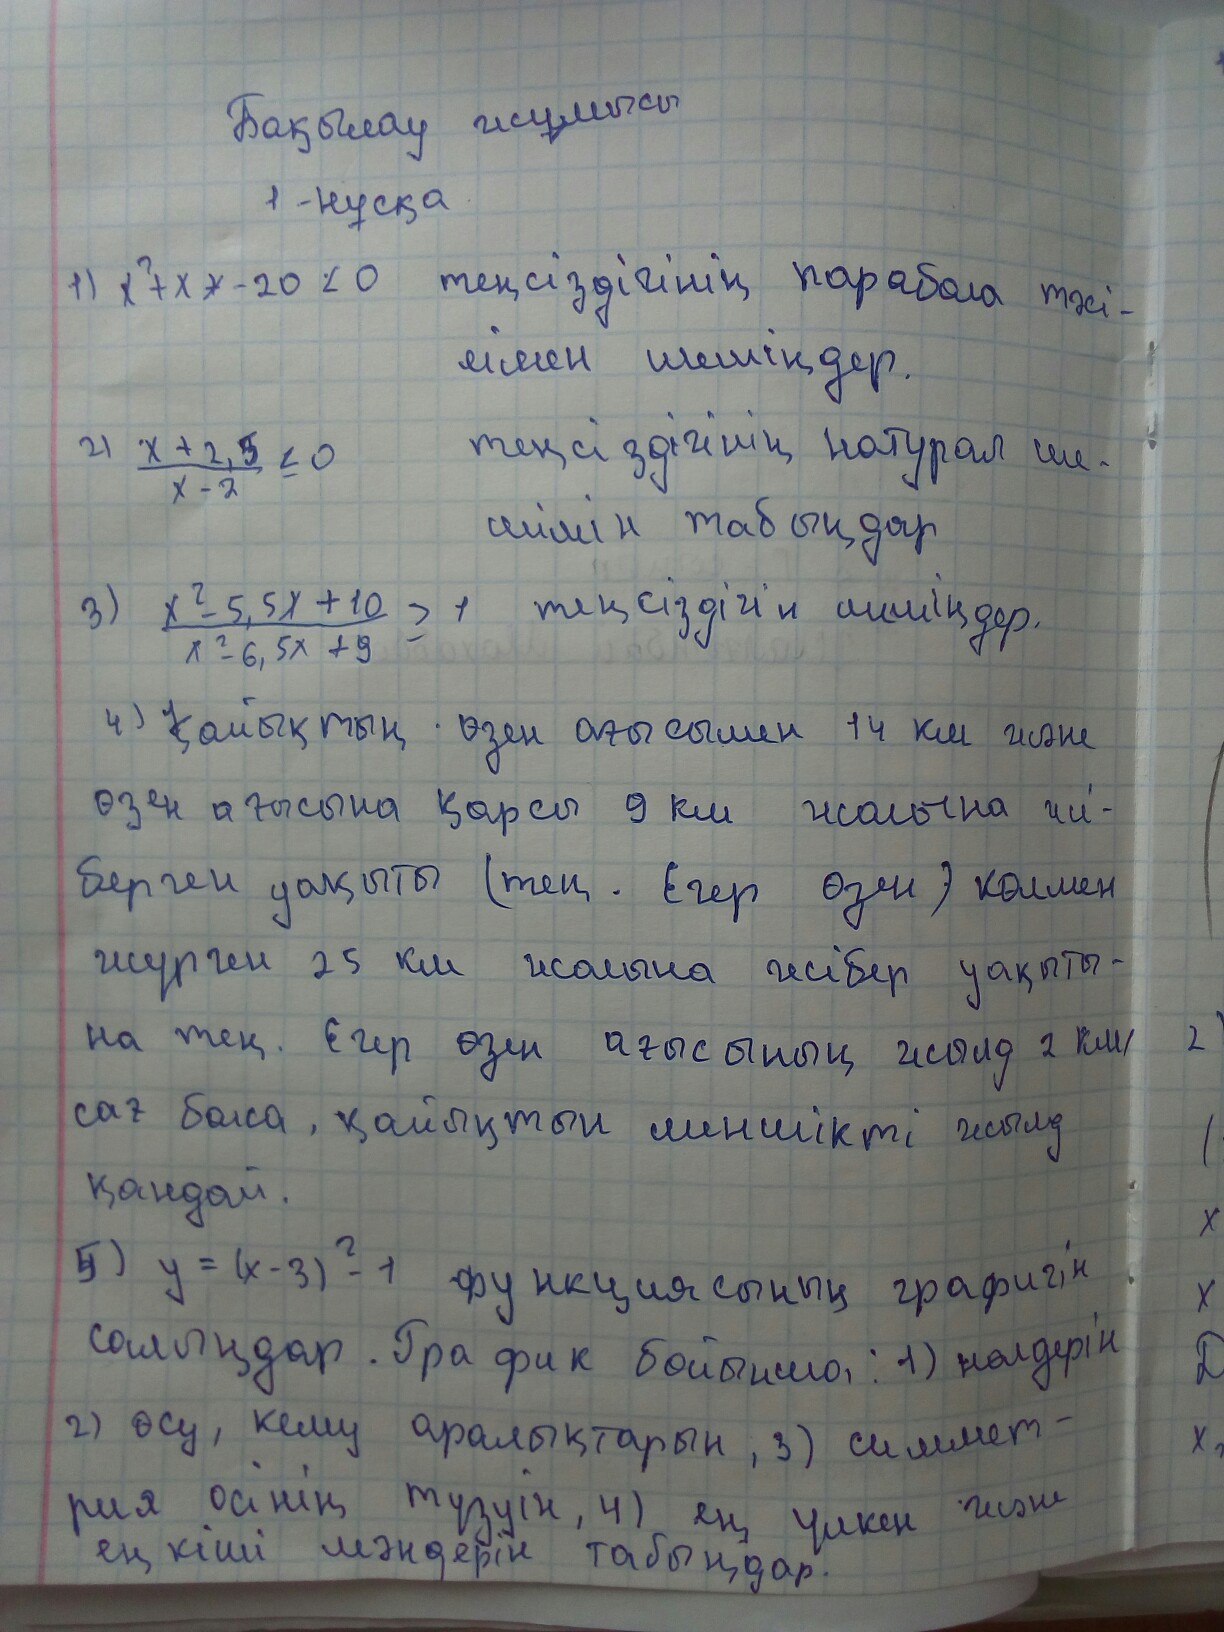 Бақылау жұмысы
1-нұсқа
1) x²+x x-20 ≤ 0 теңсіздігінің парабола тәсі-
лімен шешіңдер.
2) (x+2,5)/(x-2) ≤ 0 теңсіздігінің натурал ше-
шімін табыңдар
3) (x²-5,5x+10)/(x²-6,5x+9) ≥ 1 теңсіздігін шешіңдер.
4) Қайықтың өзен ағысымен 14 км және
өзен ағысына қарсы 9 км жолына жі-
берген уақыты (тең. Егер өзен) көлмен
жүрген 25 км жолына жібер уақыты-
на тең. Егер өзен ағысының жылд 2 км/
сағ болса, қайықтын меншікті жылд
қандай.
5) y = (x-3)²-1 функциясының графигін
салыңдар. График бойынша: 1) нөлдерін
2) өсу, кему аралықтарын, 3) симмет-
рия осінің түзуін, 4) ең үлкен және
ең кіші мәндерін табыңдар.